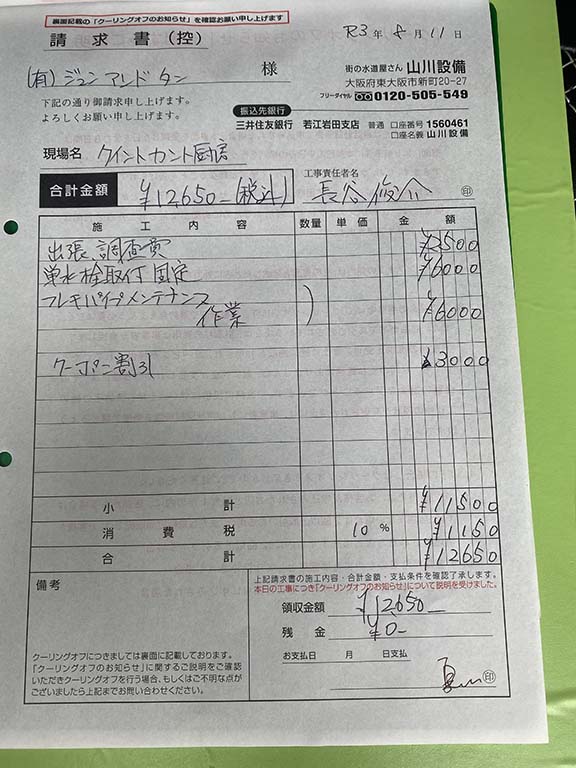 裏面記載の「クーリングオフのお知らせ」を確認お願い申し上げます
請求書(控)
R3年8月11日
(有)ジュンアンドタン 様
街の水道屋さん 山川設備
大阪府東大阪市新町20-27
フリーダイヤル 0120-505-549
下記の通り御請求申し上げます。
よろしくお願い申し上げます。
振込先銀行
三井住友銀行 若江岩田支店 普通 口座番号 1560461
口座名義 山川設備
現場名 クイントカント厨房
合計金額 ¥12,650-(税込)
工事責任者名
長谷俊介 印
施工内容 数量 単価 金額
出張、調査費 ¥2500
単水栓取付固定 ¥6000
フレキパイプメンテナンス
作業 ¥6000
クーポン割引 3000
小計 ¥11500
消費税 10% ¥1150
合計 ¥12650
備考
上記請求書の施工内容・合計金額・支払条件を確認了承します。
本日の工事につき「クーリングオフのお知らせ」について説明を受けました。
領収金額 ¥12,650-
残金 ¥0-
お支払日 月 日支払
印
クーリングオフにつきましては裏面に記載しております。
「クーリングオフのお知らせ」に関するご説明をご確認
いただきクーリングオフを行う場合、もしくはご不明な点が
ございましたら上記までお問い合わせください。